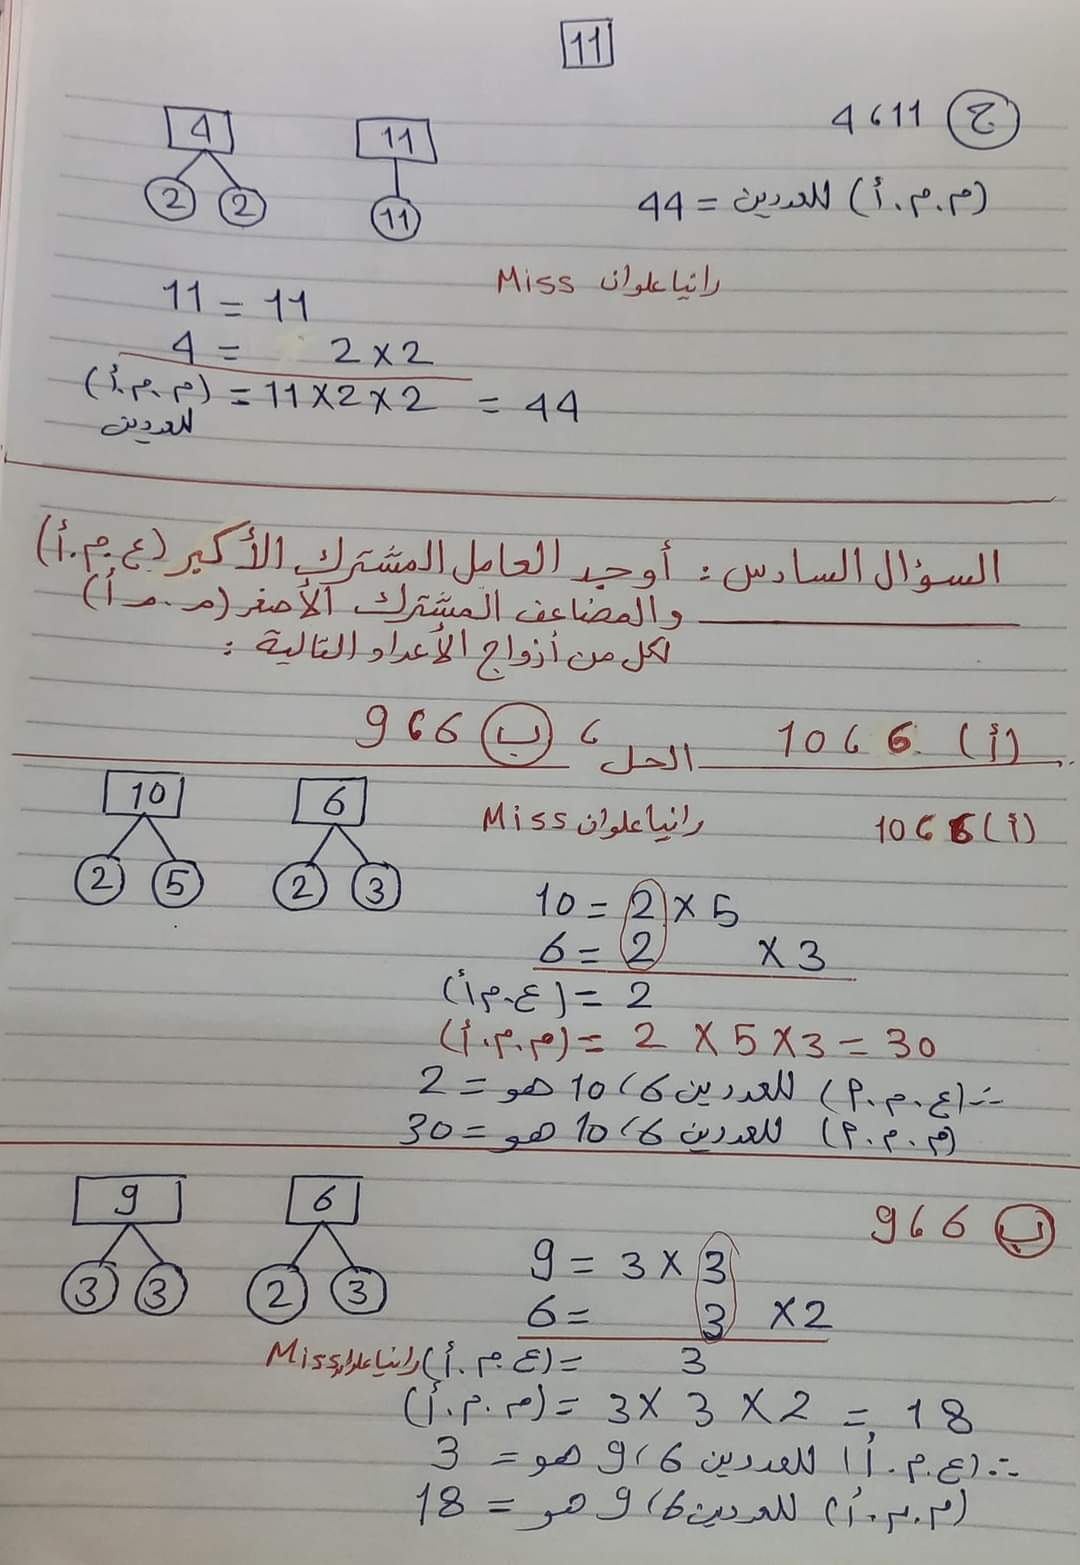 11
ج 11 ، 4
4
11
2 2
11
(م.م.أ) للعددين = 44
Miss رانيا علوان
11 = 11
4 = 2 × 2
(م.م.أ) = 11 × 2 × 2 = 44
للعددين
السؤال السادس : أوجد العامل المشترك الأكبر (ع.م.أ)
والمضاعف المشترك الأصغر (م.م.أ)
لكل من أزواج الأعداد التالية :
(أ) 6 ، 10 ، ب 6 ، 9
الحل
10
6
2 5
2 3
Miss رانيا علوان
(أ) 6 ، 10
10 = 2 × 5
6 = 2 × 3
(ع.م.أ) = 2
(م.م.أ) = 2 × 5 × 3 = 30
∴ (ع.م.أ) للعددين 6 ، 10 هو = 2
(م.م.أ) للعددين 6 ، 10 هو = 30
ب 6 ، 9
9
6
3 3
2 3
9 = 3 × 3
6 = 3 × 2
Miss رانيا علوان
(ع.م.أ) = 3
(م.م.أ) = 3 × 3 × 2 = 18
∴ (ع.م.أ) للعددين 6 ، 9 هو = 3
(م.م.أ) للعددين 6 ، 9 هو = 18